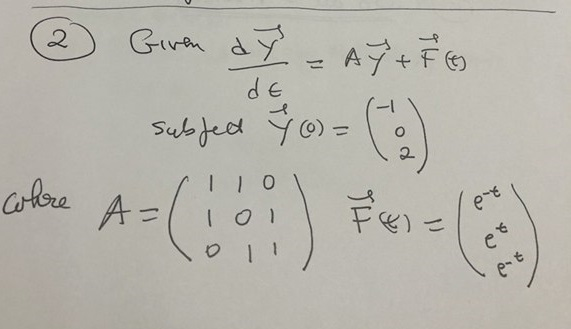 ② Given dY⃗/dt = AY⃗ + F⃗(t)
subject Y⃗(0) = (-1 0 2)
where A = (1 1 0 1 0 1 0 1 1) F⃗(t) = (e^-t e^t e^-t)